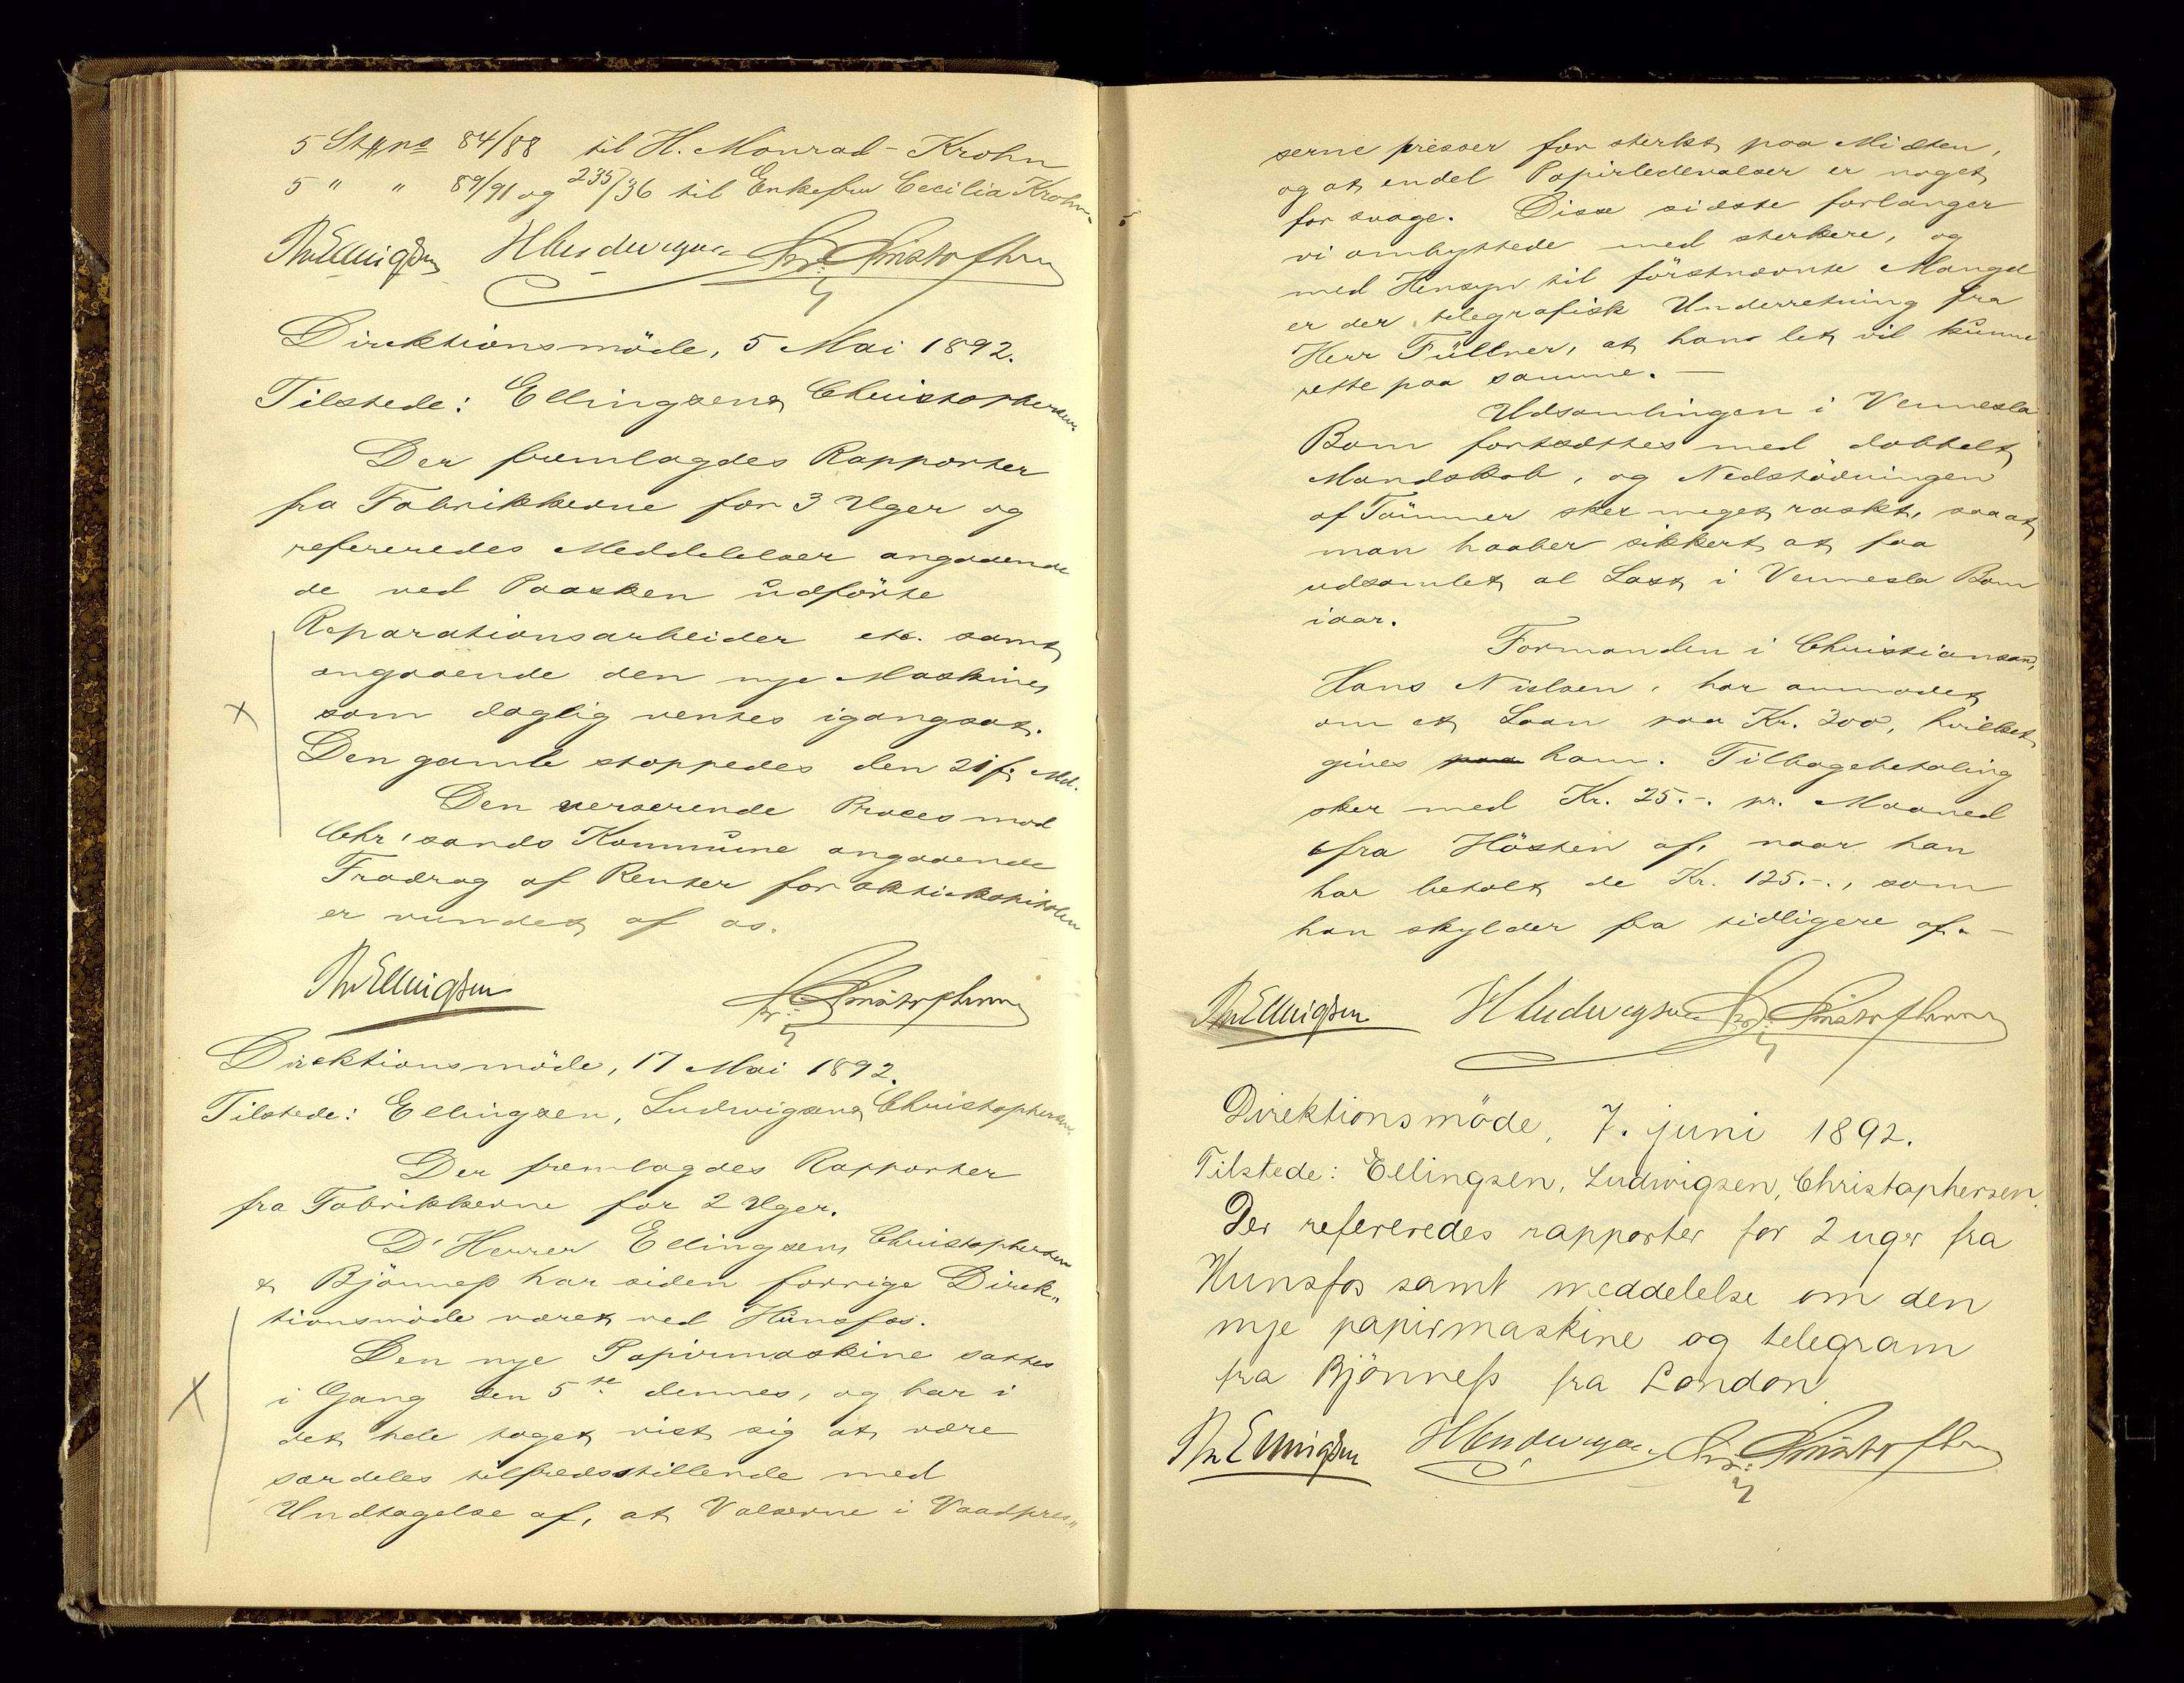 5 St. No 84/88 til H. Monrad-Krohn
5 " " 89/91 og 235/36 til Enkefru Cecilia Krohn.
ThEllingsen HLudwigsen Chr. Christophersen
Direktionsmöde, 5 Mai 1892.
Tilstede: Ellingsen & Christophersen
Der fremlagdes Rapporter
fra Fabrikkerne for 3 Uger og
refereredes Meddelelser angaaende
de ved Paasken udförte
Reparationsarbeider etc. samt
angaaende den nye Maskine,
som daglig ventes igangsat.
Den gamle stoppedes den 21 f. Md.
Den verserende Proces mod
Chr.sands Kommune angaaende
Fradrag af Renter for aktiekapitalen
er vundet af os.
ThEllingsen Chr. Christophersen
Direktionsmöde, 17 Mai 1892.
Tilstede: Ellingsen, Ludwigsen & Christophersen.
Der fremlagdes Rapporter
fra Fabrikkerne for 2 Uger.
D'Herrer Ellingsen, Christophersen
& Bjönness har siden forrige Direk„
tionsmöde været ved Hunsfos.
Den nye Papirmaskine sattes
i Gang den 5te dennes, og har i
det hele taget vist sig at være
særdeles tilfredsstillende med
Undtagelse af, at Valserne i Vaadpres„
serne presser for sterkt paa Midten,
og at endel Papirledevalser er noget
for svage. Disse sidste forlanger
vi ombyttede med sterkere, og
med Hensyn til förstnævnte Mangel
er der telegrafisk Underretning fra
Herr Füllner, at han let vil kunne
rette paa samme. —
Udsamlingen i Vennesla
Bom fortsættes med dobbelt
Mandskab, og Nedstödningen
af Tömmer sker meget raskt, saa at
man haaber sikkert at faa
udsamlet al Last i Vennesla Bom
iaar.
Formanden i Christiansand,
Hans Nielsen, har anmodet
om et Laan paa Kr. 300, hvilket
gives paa ham. Tilbagebetaling
sker med Kr. 25.-. pr. Maaned
fra Hösten af, naar han
har betalt de Kr. 125.-., som
han skylder fra tidligere af. —
ThEllingsen HLudwigsen Chr. Christophersen
Direktionsmöde, 7. juni 1892.
Tilstede: Ellingsen, Ludwigsen, Christophersen.
Der refereredes rapporter for 2 uger fra
Hunsfos samt meddelelse om den
nye papirmaskine og telegram
fra Bjönness fra London
ThEllingsen HLudwigsen Chr. Christophersen